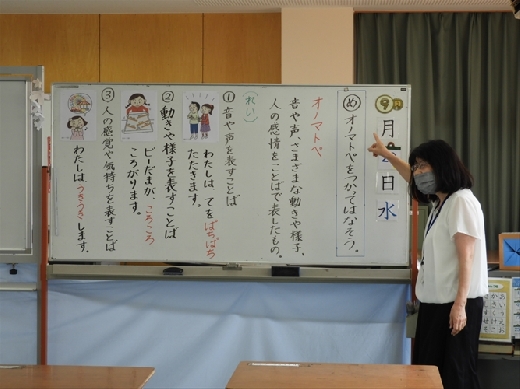 9月
月 日 水
め オノマトペをつかってはなそう。
オノマトペ
音や声、さまざまな動きや様子、
人の感情をことばで表したもの。
(れい)
① 音や声を表すことば
わたしは てを ぱちぱち
たたきます。
② 動きや様子を表すことば
ビーだまが、ころころ
ころがります。
③ 人の感覚や気持ちを表すことば
わたしは うきうき します。